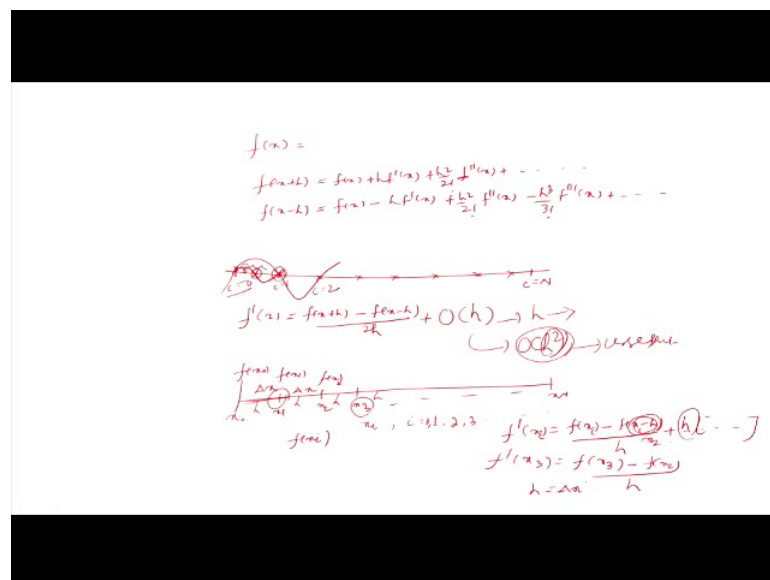 f(x) =
f(x+h) = f(x) + h f'(x) + h²/2! f''(x) + - - - - -
f(x-h) = f(x) - h f'(x) + h²/2! f''(x) - h³/3! f'''(x) + - - -
i=0 i=1 i=2 i=N
f'(x) = f(x+h) - f(x-h) / 2h + O(h) → h →
→ O(h²) → useful
f(x₀) f(x₁) f(x₂)
Δx Δx
x₀ h x₁ h x₂ h x₃ h - - - -
xᵢ, i=0,1,2,3
f(xᵢ)
f'(xᵢ) = f(xᵢ) - f(xᵢ-h) / h + h[ - - - ]
x₂
f'(x₃) = f(x₃) - f(x₂) / h
h = Δx